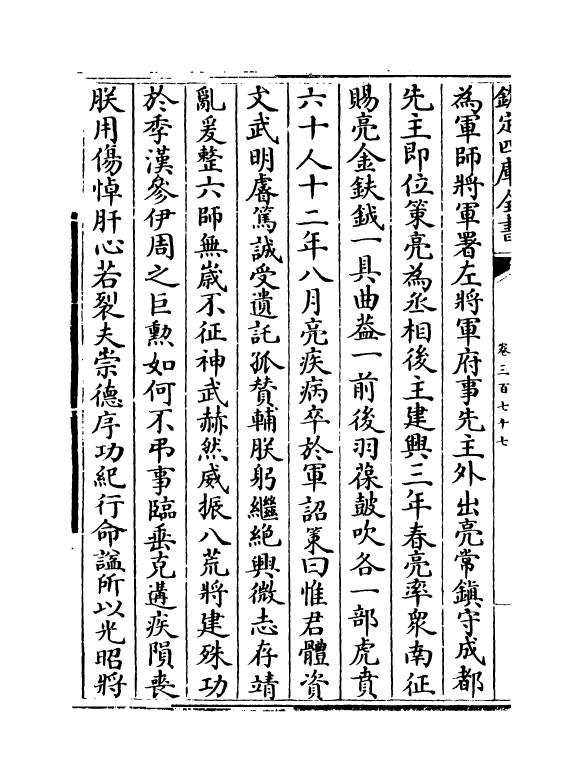 欽定四庫全書
卷三百七十七
為軍師將軍署左將軍府事先主外出亮常鎮守成都
先主即位策亮為丞相後主建興三年春亮率衆南征
賜亮金鈇鉞一具曲葢一前後羽葆鼓吹各一部虎賁
六十人十二年八月亮疾病卒於軍詔策曰惟君體資
文武明睿篤誠受遺託孤贊輔朕躬繼絶興微志存靖
亂爰整六師無嵗不征神武赫然威振八荒將建殊功
於季漢參伊周之巨勲如何不弔事臨垂克遘疾隕喪
朕用傷悼肝心若裂夫崇德序功紀行命諡所以光昭將